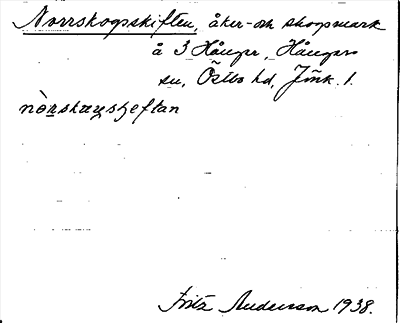 Norrskogsskiften, åker- och skogsmark
å 3 Hånger, Hångers
sn, Östbo hd, Jönk. l.
Fritz Andersson 1938.